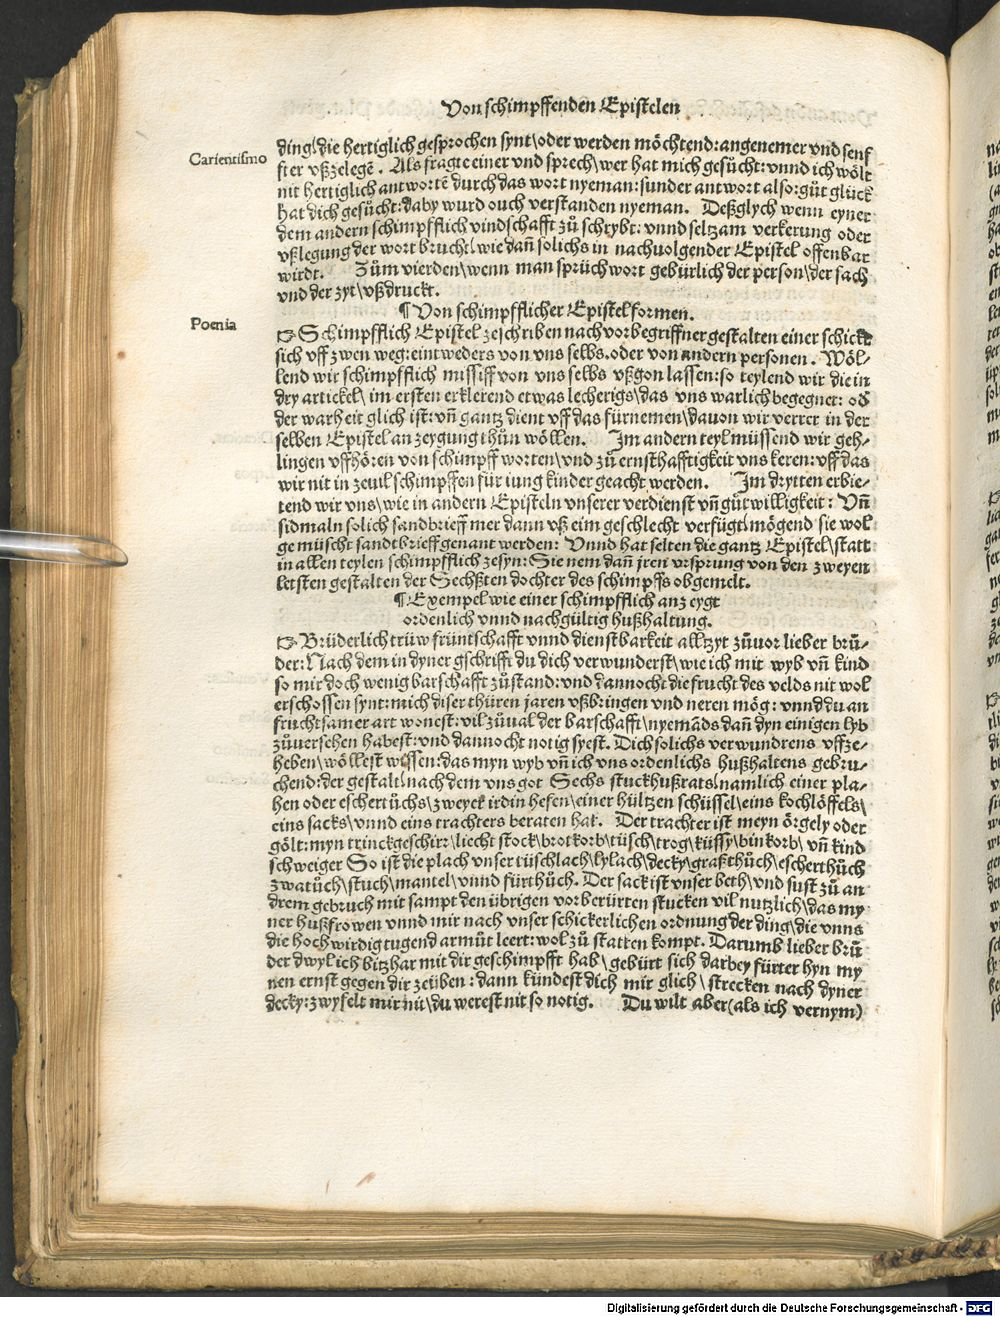 Von schimpffenden Epistelen
Carientismo
ding\die hertiglich gesprochen synt\oder werden möchtend: angenemer vnd senf
fter vßzelegē. Als fragte einer vnd sprech\wer hat mich gesůcht: vnnd ich wölt
nit hertiglich antwortē durch das wort nyeman: sunder antwort also: gůt glück
hat dich gesůcht: daby wurd ouch verstanden nyeman. Deßglych wenn eyner
dem andern schimpfflich vindschafft zů schrybt: vnnd seltzam verkerung oder
vßlegung der wort brucht\wie dañ solichs in nachuolgender Epistel offenbar
wirdt. Zům vierden\wenn man sprüchwort gebürlich der person\der sach
vnd der zyt\vßdruckt.
¶ Von schimpfflicher Epistel formen.
Poenia
Schimpfflich Epistel zeschriben nach vorbegriffner gestalten einer schickt
sich vff zwen weg: eintweders von vns selbs. oder von andern personen. Wöl-
lend wir schimpfflich missiff von vns selbs vßgon lassen: so teylend wir die in
dry artickel\ im ersten erklerend etwas lecherigs\das vns warlich begegnet: od̄
der warheit glich ist: vñ gantz dient vff das fürnemen\dauon wir verrer in der
selben Epistel anzeygung thůn wöllen. Im andern teyl müssend wir geh-
lingen vffhören von schimpff worten\vnd zů ernsthafftigkeit vns keren: vff das
wir nit in zeuil schimpffen für iung kinder geacht werden. Im drytten erbie-
tend wir vns\wie in andern Episteln vnserer verdienst vñ gůtwilligkeit: Vñ
sidmaln solich sandbrieff mer dann vß eim geschlecht verfügt\mögend sie wol
gemüscht sandtbrieff genant werden: Vnnd hat selten die gantz Epistel\statt
in allen teylen schimpfflich zesyn: Sie nem dañ jren vrsprung von den zweyen
letsten gestalten der Sechßten dochter des schimpffs obgemelt.
¶ Exempel wie einer schimpfflich anzeygt
ordenlich vnnd nachgültig hußhaltung.
Brüderlich trüw früntschafft vnnd dienstbarkeit alltzyt zůuor lieber brů-
der: Nach dem in dyner gschrifft du dich verwunderst\wie ich mit wyb vñ kind
so mir doch wenig barschafft zůstand: vnd dannocht die frucht des velds nit wol
erschossen synt: mich diser thüren jaren vßbringen vnd neren mög: vnnd du an
fruchtsamer art wonest: vil zůual der barschafft\nyemāds dañ dyn einigen lyb
zůuersehen habest: vnd dannocht notig syest. Dich solichs verwundrens vffze-
heben\wöllest wissen: das myn wyb vñ ich vns ordenlichs hußhaltens gebru-
chend: der gestalt\nach dem vns got Sechs stuck hußrats\namlich einer pla-
hen oder eschertůchs\zweyer irdin hefen\einer hültzen schüssel\eins kochlöffels\
eins sacks\vnnd eins trachters beraten hat. Der trachter ist meyn örgely oder
gölt: myn trinckgeschirr\liecht stock\brotkorb\tüsch\trog\küssy\binkorb\ vñ kind
schweiger So ist die plach vnser tüschlach\lylach\decky\graßthůch\escherthůch
zwatůch\stuch\mantel\vnnd fürthůch. Der sack ist vnser beth\vnd sust zů an
drem gebruch mit sampt den übrigen vorberürten stucken vil nutzlich\das my
ner hußfrowen vnnd mir nach vnser schickerlichen ordnung der ding\die vnns
die hochwirdig tugend armůt leert: wol zů statten kompt. Darumb lieber brů
der dwyl ich bitzhar mit dir geschimpfft hab\gebürt sich darbey fürter hyn my
nen ernst gegen dir zeüben: dann kündest dich mir glich\strecken nach dyner
decky: zwyfelt mir nit\du werest nit so notig. Du wilt aber (als ich vernym)
Digitalisierung gefördert durch die Deutsche Forschungsgemeinschaft - DFG